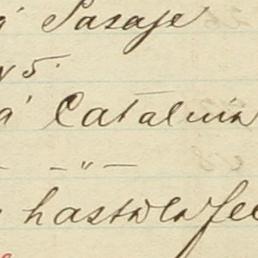 á Pasaje
y 5.
á Catalina
- - " -
hasta la fe